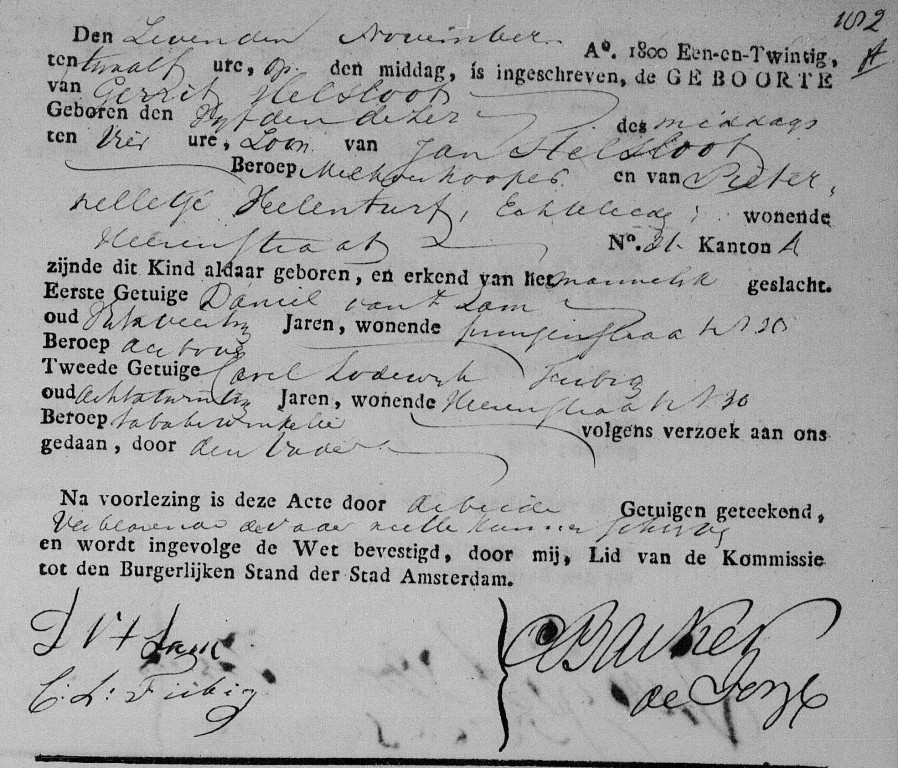 182
A
Den Sevenden November A°. 1800 Een-en-Twintig,
ten twaalf ure, op den middag, is ingeschreven, de GEBOORTE
van Gerrit Helsloot
Geboren den Vyfden dezer des middags
ten Vier ure, Zoon van Jan Helsloot
Beroep Melkverkooper en van Pieter
nelletje Heelenturf, Echtelieden, wonende
Heerenstraat N°. 31 Kanton A
zijnde dit Kind aldaar geboren, en erkend van het mannelijk geslacht.
Eerste Getuige Daniel van t Lam
oud Jaren, wonende N 30
Beroep
Tweede Getuige Carel Lodewyk Fiebig
oud Achtentwintig Jaren, wonende Heerenstraat N 30
Beroep tabakswinkelier volgens verzoek aan ons
gedaan, door den Vader
Na voorlezing is deze Acte door de beide Getuigen geteekend,
Verklarende de vader niet te kunnen schryven
en wordt ingevolge de Wet bevestigd, door mij, Lid van de Kommissie
tot den Burgerlijken Stand der Stad Amsterdam.
D V t Lam
C. L: Fiebig
C Bakker
de Jonge